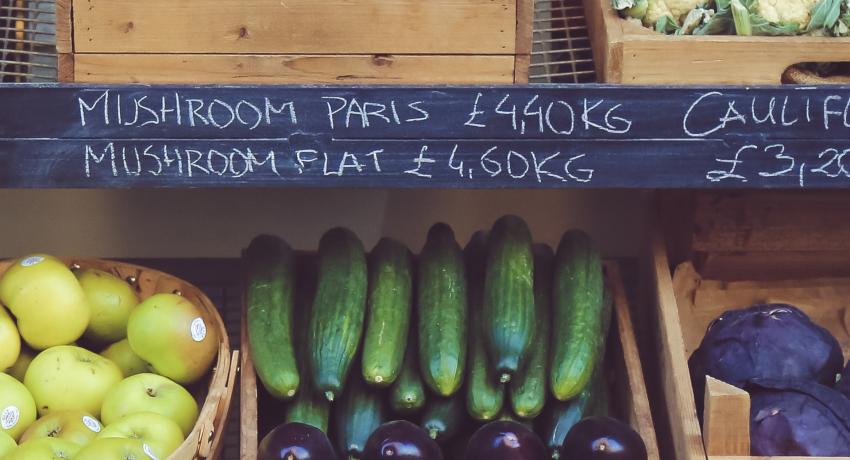 MUSHROOM PARIS £4,40KG
MUSHROOM FLAT £4,60KG
CAULIF
£3,20